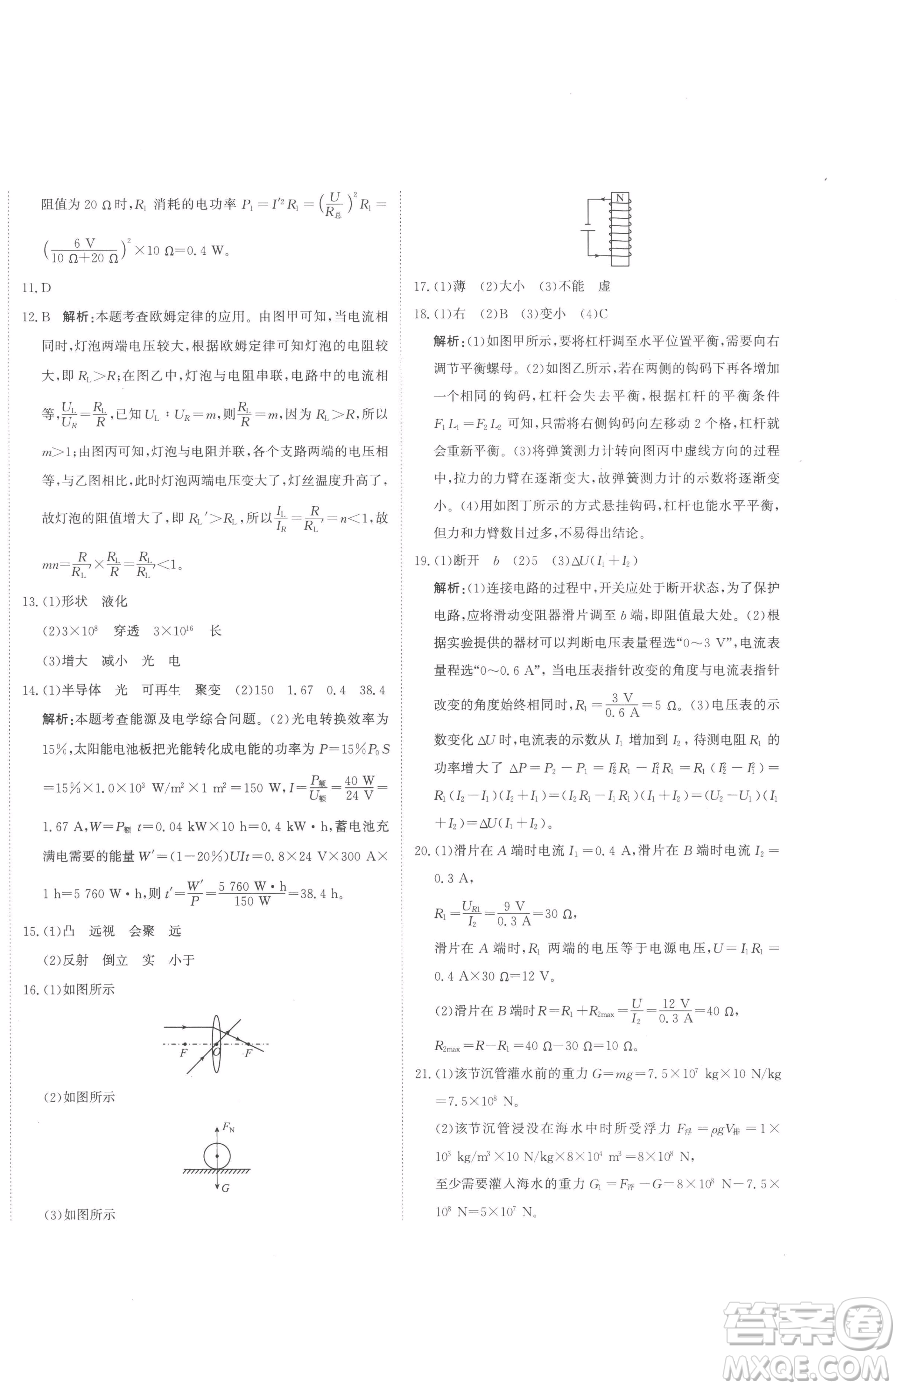 阻值为 20 Ω时,R₁ 消耗的电功率 P₁=I'²R₁=(U/R总)²R₁=
(6 V/(10 Ω+20 Ω))²×10 Ω=0.4 W。
11. D
12. B 解析:本题考查欧姆定律的应用。由图甲可知,当电流相
同时,灯泡两端电压较大,根据欧姆定律可知灯泡的电阻较
大,即 R_L>R;在图乙中,灯泡与电阻串联,电路中的电流相
等,U_L/U_R=R_L/R,已知 U_L∶U_R=m,则R_L/R=m,因为 R_L>R,所以
m>1;由图丙可知,灯泡与电阻并联,各个支路两端的电压相
等,与乙图相比,此时灯泡两端电压增大了,灯丝温度升高了,
故灯泡的阻值增大了,即 R_L'>R_L,所以I_L/I_R=R/R_L'=n<1,故
mn=R/R_L'×R_L/R=R_L/R_L'<1。
13. (1)形状 液化
(2)3×10⁸ 穿透 3×10¹⁶ 长
(3)增大 减小 光 电
14. (1)半导体 光 可再生 聚变 (2)150 1.67 0.4 38.4
解析:本题考查能源及电学综合问题。(2)光电转换效率为
15%,太阳能电池板把光能转化成电能的功率为 P=15%P₀S
=15%×1.0×10³ W/m²×1 m²=150 W,I=P额/U额=40 W/24 V≈
1.67 A,W=P额t=0.04 kW×10 h=0.4 kW·h,蓄电池充
满电需要的能量 W'=(1-20%)UIt=0.8×24 V×300 A×
1 h=5 760 W·h,则 t'=W'/P=5 760 W·h/150 W=38.4 h。
15. (1)凸 远视 会聚 远
(2)反射 倒立 实 小于
16. (1)如图所示
F O F
(2)如图所示
F_N
G
(3)如图所示
N
17. (1)薄 (2)大小 (3)不能 虚
18. (1)右 (2)B (3)变小 (4)C
解析:(1)如图甲所示,要将杠杆调至水平位置平衡,需要向右
调节平衡螺母。(2)如图乙所示,若在两侧的钩码下方各增加
一个相同的钩码,杠杆会失去平衡,根据杠杆的平衡条件
F₁L₁=F₂L₂ 可知,只需将右侧钩码向左移动 2 个格,杠杆就会
重新平衡。(3)将弹簧测力计转向图丙中虚线方向的过程
中,拉力的力臂在逐渐变大,故弹簧测力计的示数将逐渐变
小。(4)用如图丁所示的方式悬挂钩码,杠杆也能水平平衡,
但力和力臂数目过多,不易得出结论。
19. (1)断开 b (2)5 (3)ΔU(I₁+I₂)
解析:(1)连接电路的过程中,开关应处于断开状态,为了保护
电路,应将滑动变阻器滑片调至 b 端,即阻值最大处。(2)根
据实验提供的器材可以判断电压表量程选“0～3 V”,电流表
量程选“0～0.6 A”,当电压表指针改变的角度与电流表指针
改变的角度始终相同时,R₁=3 V/0.6 A=5 Ω。(3)电压表的示
数变化 ΔU 时,电流表的示数从 I₁ 增加到 I₂,待测电阻 R₁ 的
功率增大了 ΔP=P₂-P₁=I₂²R₁-I₁²R₁=(I₂²-I₁²)R₁=
R₁(I₂-I₁)(I₂+I₁)=(I₂R₁-I₁R₁)(I₂+I₁)=(U₂-U₁)(I₂
+I₁)=ΔU(I₁+I₂)。
20. (1)滑片在 A 端时电流 I₁=0.4 A,滑片在 B 端时电流 I₂=
0.3 A,
R₁=U_R1/I₂=9 V/0.3 A=30 Ω,
滑片在 A 端时,R₁ 两端的电压等于电源电压,U=I₁R₁=
0.4 A×30 Ω=12 V。
(2)滑片在 B 端时 R=R₁+R₂max=U/I₂=12 V/0.3 A=40 Ω,
R₂max=R-R₁=40 Ω-30 Ω=10 Ω。
21. (1)该节沉管灌水前的重力 G=mg=7.5×10⁷ kg×10 N/kg
=7.5×10⁸ N。
(2)该节沉管浸没在海水中时所受浮力 F浮=ρgV排=1×
10³ kg/m³×10 N/kg×8×10⁴ m³=8×10⁸ N,
至少需要灌入海水的重力 G₁=F浮-G=8×10⁸ N-7.5×
10⁸ N=5×10⁷ N。
答案圈
MXQE.COM